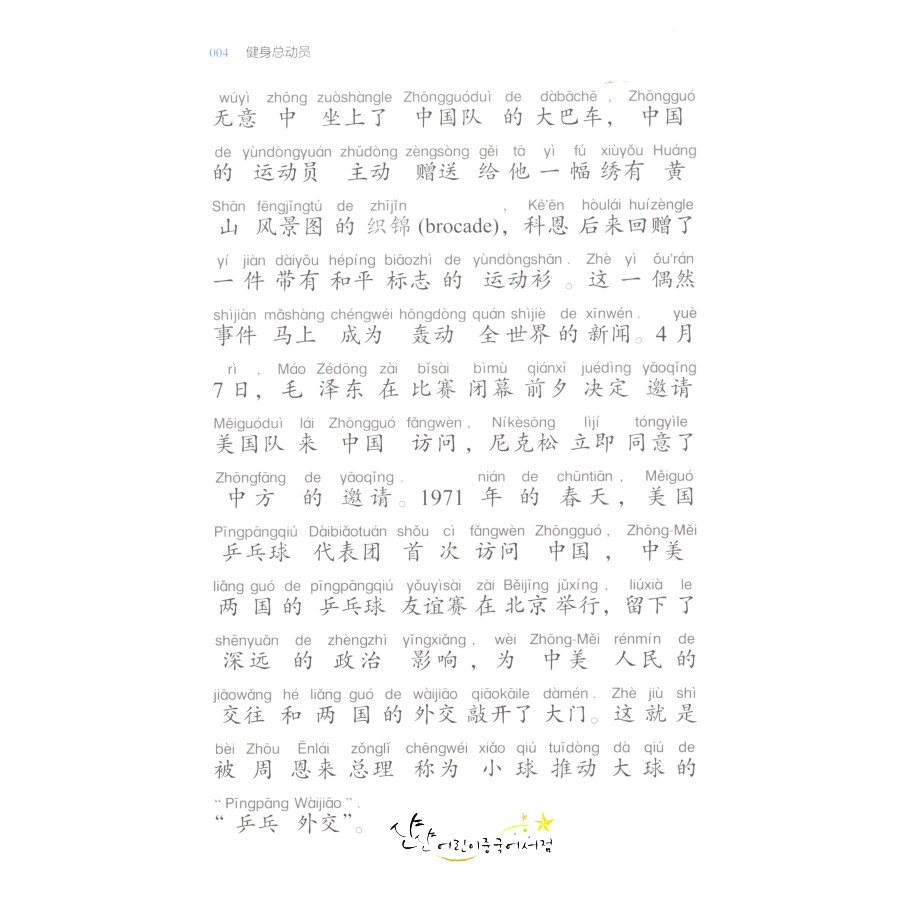 004 健身总动员
wúyì zhōng zuòshàngle Zhōngguóduì de dàbāchē, Zhōngguó
无意 中 坐上了 中国队 的 大巴车，中国
de yùndòngyuán zhǔdòng zèngsòng gěi tā yì fú xiùyǒu Huáng
的 运动员 主动 赠送 给 他 一 幅 绣有 黄
Shān fēngjǐngtú de zhījǐn , Kē'ēn hòulái huízèngle
山 风景图 的 织锦 (brocade)，科恩 后来 回赠了
yí jiàn dàiyǒu hépíng biāozhì de yùndòngshān. Zhè yì ǒu'rán
一 件 带有 和平 标志 的 运动衫。这 一 偶然
shìjiàn mǎshàng chéngwéi hōngdòng quán shìjiè de xīnwén. yuè
事件 马上 成为 轰动 全 世界 的 新闻。4 月
rì, Máo Zédōng zài bǐsài bìmù qiánxī juédìng yāoqǐng
7 日，毛 泽东 在 比赛 闭幕 前夕 决定 邀请
Měiguóduì lái Zhōngguó fǎngwèn, Níkèsōng lìjí tóngyìle
美国队 来 中国 访问，尼克松 立即 同意了
Zhōngfāng de yāoqǐng. nián de chūntiān, Měiguó
中方 的 邀请。1971 年 的 春天，美国
Pīngpāngqiú Dàibiǎotuán shǒu cì fǎngwèn Zhōngguó, Zhōng-Měi
乒乓球 代表团 首 次 访问 中国，中美
liǎng guó de pīngpāngqiú yǒuyìsài zài Běijīng jǔxíng, liúxià le
两 国 的 乒乓球 友谊赛 在 北京 举行，留下 了
shēnyuǎn de zhèngzhì yǐngxiǎng, wèi Zhōng-Měi rénmín de
深远 的 政治 影响，为 中美 人民 的
jiāowǎng hé liǎng guó de wàijiāo qiāokāile dàmén. Zhè jiù shì
交往 和 两 国 的 外交 敲开了 大门。这 就 是
bèi Zhōu Ēnlái zǒnglǐ chēngwéi xiǎo qiú tuīdòng dà qiú de
被 周 恩来 总理 称为 小 球 推动 大 球 的
“Pīngpāng Wàijiāo”.
“乒乓 外交”。
산산 어린이중국어서점